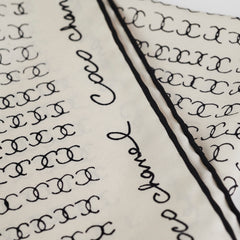 Coco Chanel
Coco Chanel